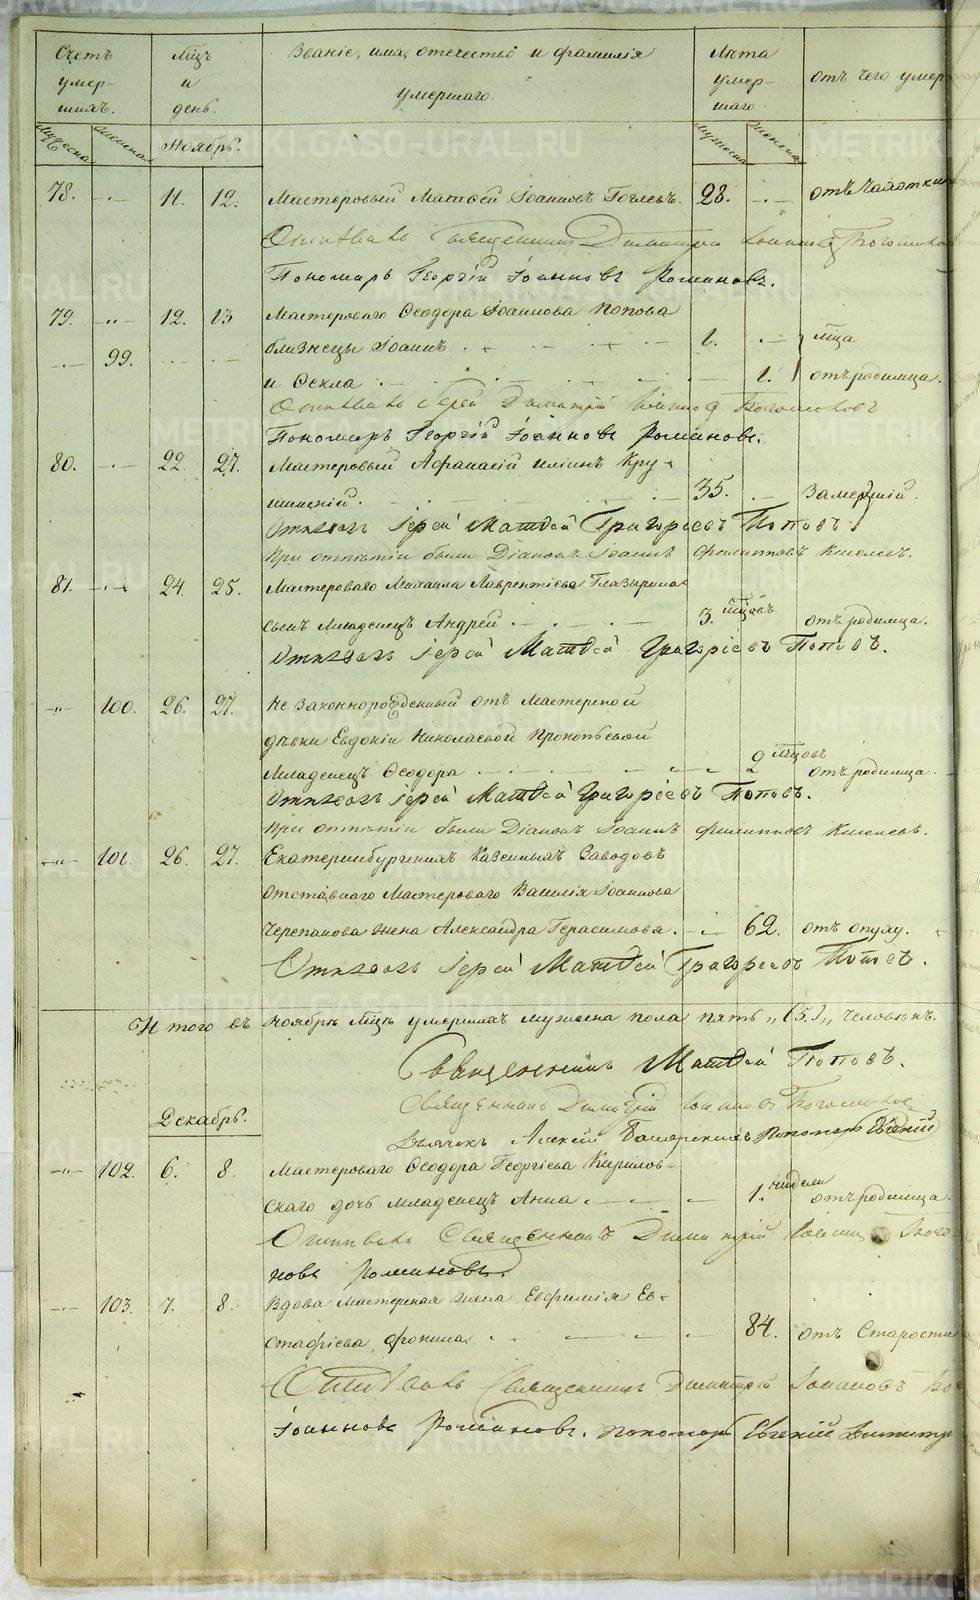 Счетъ умер-шихъ.
Мѣсяцъ и день.
Званіе, имя, отчество и фамилія умершаго.
Лѣта умер-шаго
отъ чего умер
мужеска женска Ноябрь. мужска женска
78. 11. 12. Мастеровый Матѳей Іоанновъ 28. отъ чахотки
Отпѣвалъ Священникъ Димитрій Іоанновъ
Пономарь Георгій Іоанновъ Романовъ.
79. 12. 13 Мастероваго Ѳеодора Іоаннова Попова
99. близнецы Іоаннъ 1. мца
и Ѳекла 1. отъ родимца.
Отпѣвалъ Іерей Димитрій
Пономарь Георгій Іоанновъ Романовъ.
80. 22. 27. Мастеровый Афанасій Илiинъ Кру-
шинскій. 35. Замершій.
Отпѣвалъ Іерей Матѳей Григорьевъ Поповъ.
При отпѣтіи были Діаконъ Іоаннъ Филипповъ Киселевъ.
81. 24. 25. Мастероваго Михаила Лаврентіева Глазырина
сынъ Младенецъ Андрей 3. мцовъ отъ родимца.
Отпѣвалъ Іерей Матѳей Григоріевъ Поповъ.
100. 26. 27. Не законнорожденный отъ Мастерской
дѣвки Евдокіи Николаевой Прокопьевой
Младенецъ Ѳеодора 2 мцовъ отъ родимца
Отпѣвалъ Іерей Матѳей Григоріевъ Поповъ.
При отпѣтіи были Діаконъ Іоаннъ Филипповъ Киселевъ.
101. 26. 27. Екатеринбургскихъ Казенныхъ Заводовъ
Отставнаго Мастероваго Василія Іоаннова
Черепанова жена Александра Герасимова. 62. отъ опуху.
Отпѣвалъ Іерей Матѳей Григорьевъ Поповъ.
Итого въ Ноябрѣ Мцѣ умершихъ мужеска пола пять „(5.)„ человѣкъ.
Священникъ Матѳей Поповъ.
Священникъ Димитрій Іоанновъ
Декабрь.
Дьячекъ Алексѣй Пономарь Евгеній
102. 6. 8. Мастероваго Ѳеодора Георгіева Кирилов-
скаго дочь младенецъ Анна 1. недели отъ родимца.
Отпѣвалъ Священникъ Димитрій
новъ Романовъ.
103. 7. 8. Вдова Мастерская жена Евфимія Ев-
стафіева Фокина 84. отъ Старости
Отпѣвалъ Священникъ Димитрій Іоанновъ
Іоанновъ Романовъ. пономарь Евгеній Димитр
METRIKI.GASO-URAL.RU